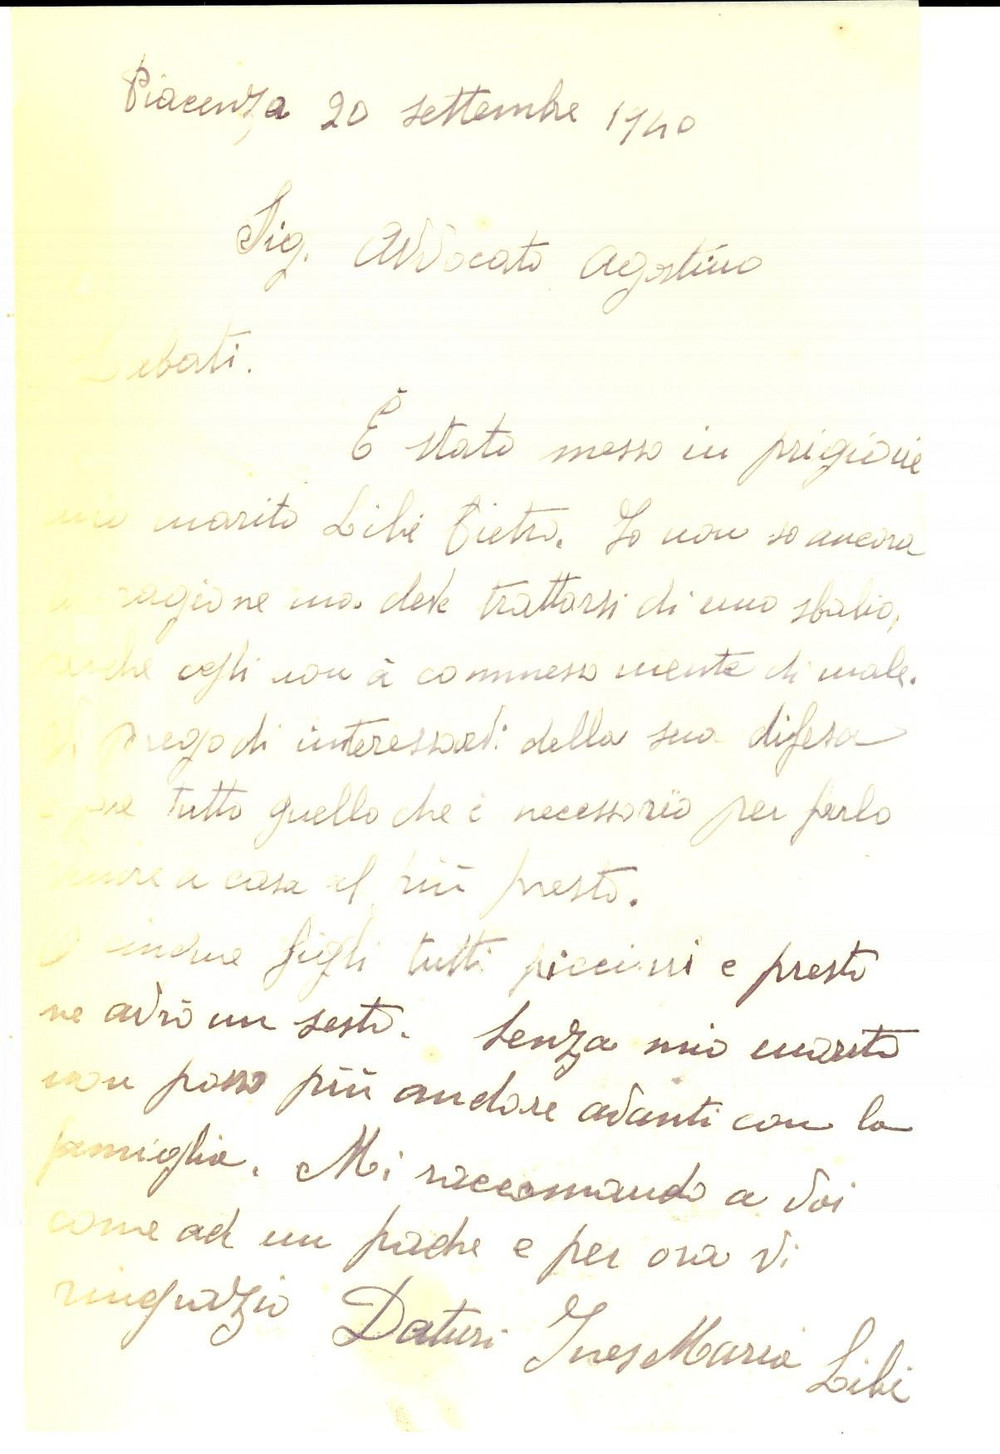 Piacenza 20 settembre 1940
Sig. Avvocato Agostino
Labati.
È stato messo in prigione
mio marito Libè Pietro. Io non so ancora
la ragione ma deve trattarsi di uno sbalio,
perche egli non à commesso niente di male.
Vi prego di interessarvi della sua difesa
e fare tutto quello che è necessario per farlo
venire a casa al più presto.
O cinque figli tutti piccinni e presto
ne avrò un sesto. Senza mio marito
non posso più andare avanti con la
famiglia. Mi raccomando a voi
come ad un padre e per ora vi
ringrazio Daturi Ines Maria Libè